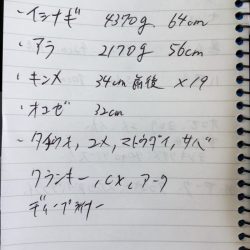 ・イシナギ 4370g 64cm
・アラ 2170g 56cm
・キンメ 34cm前後 ×19
・オコゼ 32cm
・タチウオ, ユメ, マトウダイ, サバ
クランキー, CX, アーク
ディープライナー